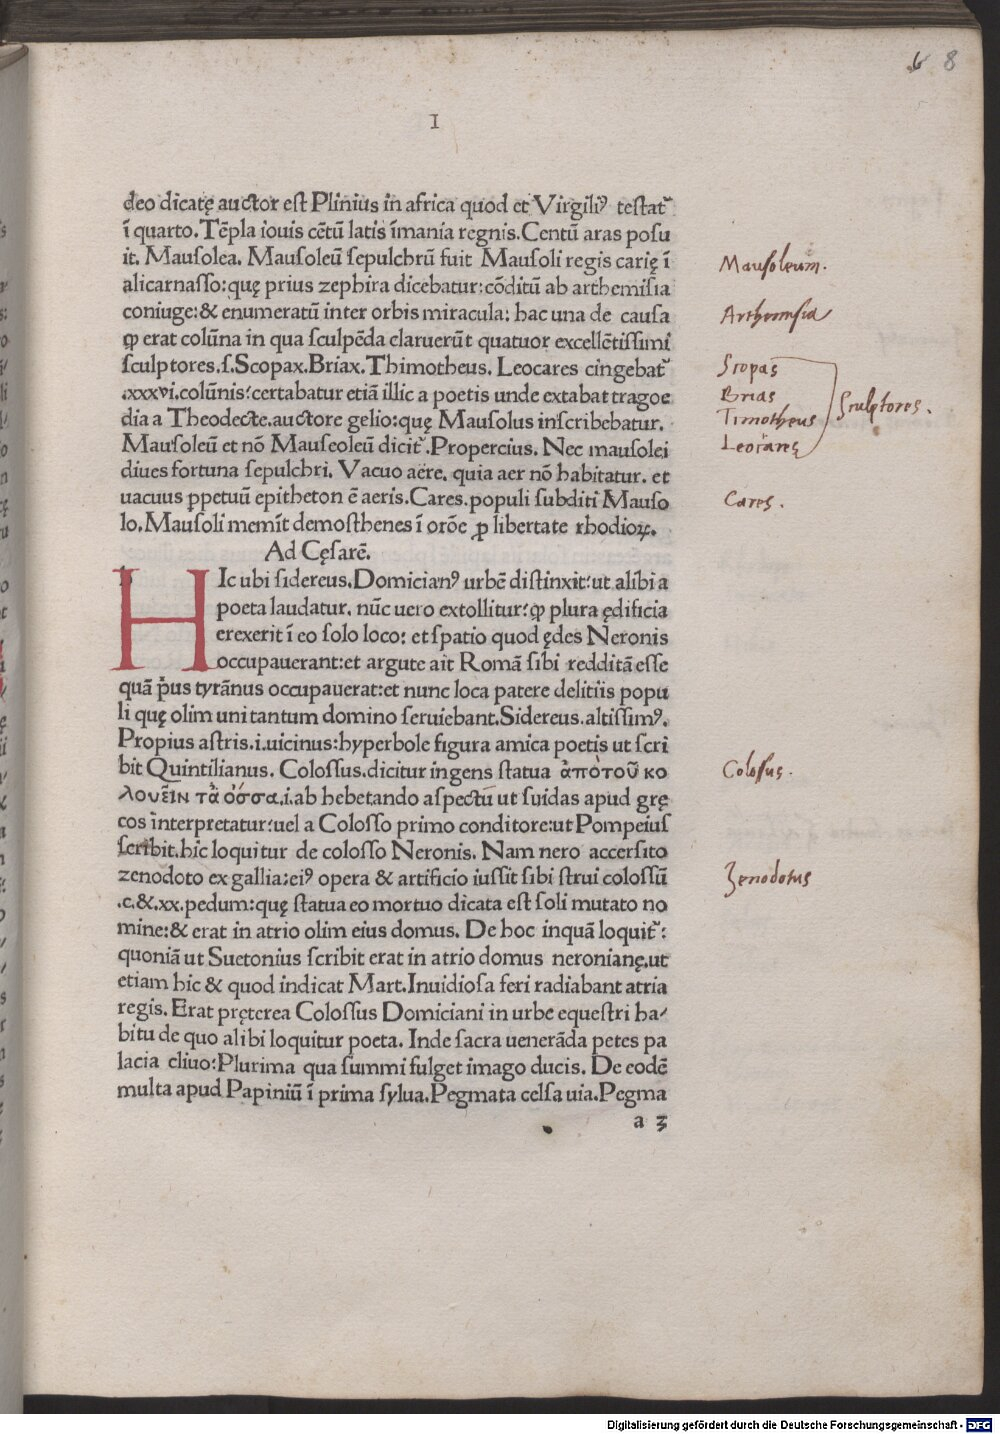 6 8
I
deo dicatę auctor est Plinius in africa quod et Virgiliꝰ testat᷑
ī quarto. Tēpla iouis cētū latis īmania regnis. Centū aras posu
it. Mausolea. Mausoleū sepulchrū fuit Mausoli regis carię ī
alicarnasso: quę prius zephira dicebatur: cōditū ab arthemisia
coniuge: & enumeratū inter orbis miracula: hac una de causa
ꝙ erat colūna in qua sculpēda claruerūt quatuor excellētissimi
sculptores .s. Scopax. Briax. Thimotheus. Leocares cingebat᷑
.xxxvi. colūnis: certabatur etiā illic a poetis unde extabat tragoe
dia a Theodecte. auctore gelio: quę Mausolus inscribebatur.
Mausoleū et nō Mauseoleū dicit᷑. Propercius. Nec mausolei
diues fortuna sepulchri. Vacuo aere. quia aer nō habitatur. et
uacuus ꝑpetuū epitheton ē aeris. Cares. populi subditi Mauso
lo. Mausoli memīt demosthenes ī orōe ꝓ libertate rhodioꝝ.
Ad Cęsarē.
HIc ubi sidereus. Domicianꝰ urbē distinxit: ut alibi a
poeta laudatur. nūc uero extollitur: ꝙ plura ędificia
erexerit ī eo solo loco: et spatio quod ędes Neronis
occupauerant: et argute ait Romā sibi redditā esse
quā p̄us tyrānus occupauerat: et nunc loca patere delitiis popu
li quę olim uni tantum domino seruiebant. Sidereus. altissimꝰ.
Propius astris .i. uicinus: hyperbole figura amica poetis ut scri
bit Quintilianus. Colossus. dicitur ingens statua ἀπὸ τοῦ κο
λουεῖν τὰ ὄσσα .i. ab hebetando aspectu ut suidas apud grę
cos interpretatur: uel a Colosso primo conditore: ut Pompeius
scribit. hic loquitur de colosso Neronis. Nam nero accersito
zenodoto ex gallia: eiꝰ opera & artificio iussit sibi strui colossū
.c. & .xx. pedum: quę statua eo mortuo dicata est soli mutato no
mine: & erat in atrio olim eius domus. De hoc inquā loquit᷑:
quoniā ut Suetonius scribit erat in atrio domus neronianę, ut
etiam hic & quod indicat Mart. Inuidiosa feri radiabant atria
regis. Erat pręterea Colossus Domiciani in urbe equestri ha⸗
bitu de quo alibi loquitur poeta. Inde sacra uenerāda petes pa
lacia cliuo: Plurima qua summi fulget imago ducis. De eodē
multa apud Papiniū ī prima sylua. Pegmata celsa uia. Pegma
a 3
Mausoleum.
Arthemisia
Scopas
Brias
Timotheus
Leocares
Sculptores.
Cares.
Colossus.
Zenodotus
Digitalisierung gefördert durch die Deutsche Forschungsgemeinschaft - DFG